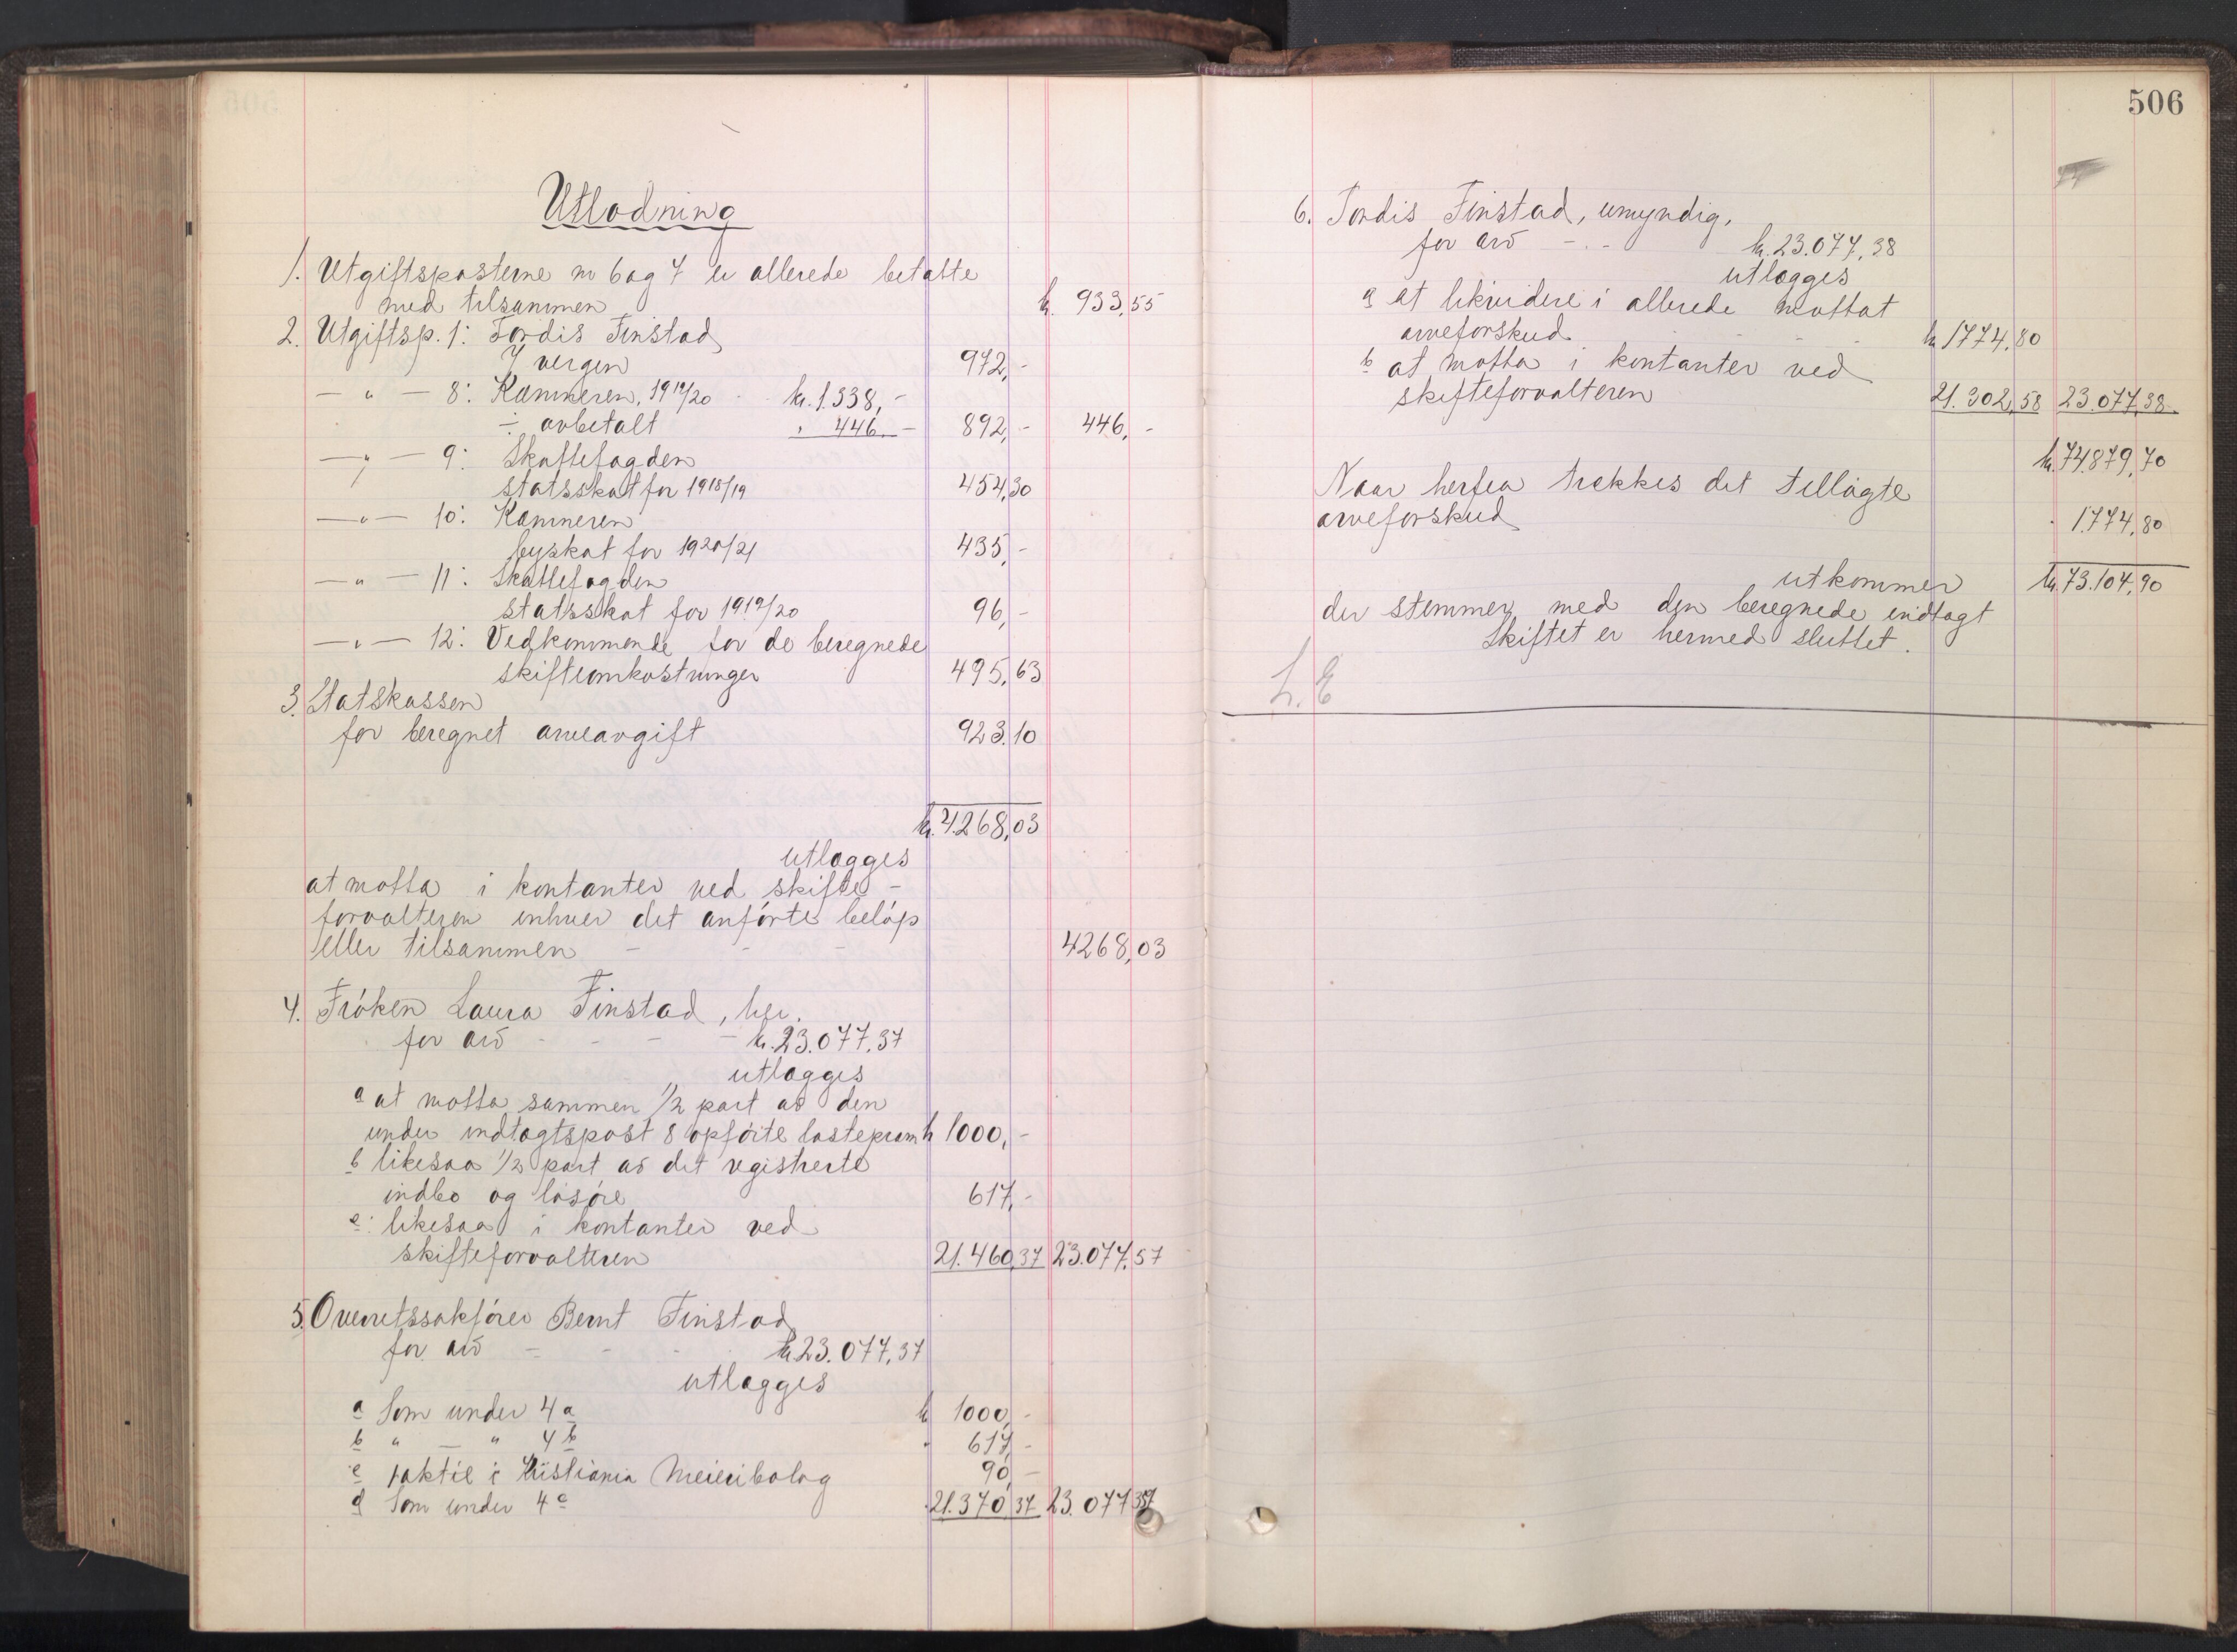 Utlodning
1. Utgiftsposterne nr 6 og 7 er allerede betalte
med tilsammen kr. 933,55
2. Utgiftsp. 1: Tordis Finstad
v vergen 972,-
— " — 8: Kæmneren, 1919/20 kr. 1.338,-
÷ avbetalt " 446.- 892,- 446,-
— " — 9: Skattefogden
statsskat for 1918/19 454,30
— " — 10: Kæmneren
byskat for 1920/21 435,-
— " — 11: Skattefogden
statsskat for 1919/20 96,-
— " — 12: Vedkommende for de beregnede
skifteomkostninger 495,63
3. Statskassen
for beregnet arveavgift 923.10
kr. 4.268,03
utlægges
at motta i kontanter ved skifte-
forvalteren enhver det anførte beløp
eller tilsammen - - - 4268,03
4. Frøken Laura Finstad, her.
for arv - - - - kr. 23.077,37
utlægges
a at motta sammen 1/2 part av den
under indtægtspost 8 opførte lastepram kr 1000,-
b likesaa 1/2 part av det registrerte
indbo og løsøre 617,-
c: likesaa i kontanter ved
skifteforvalteren 21.460,37 23.077,37
5. Overretssakfører Bernt Finstad
for arv - - - kr 23.077,37
utlægges
a Som under 4a kr 1000,-
b " — " 4b " 617,-
c 1 aktie i Kristiania Meieribolag 90,-
d Som under 4c 21.370,37 23.077,37
506
6. Tordis Finstad, umyndig,
for arv - - - kr. 23.077,38
utlægges
a at likvidere i allerede mottat
arveforskud kr 1774,80
b at motta i kontanter ved
skifteforvalteren 21.302,58 23.077,38
kr. 74.879,70
Naar herfra trækkes det tillagte
arveforskud " 1.774,80
utkommer kr. 73.104,90
der stemmer med den beregnede indtægt
Skiftet er hermed sluttet.
L. E